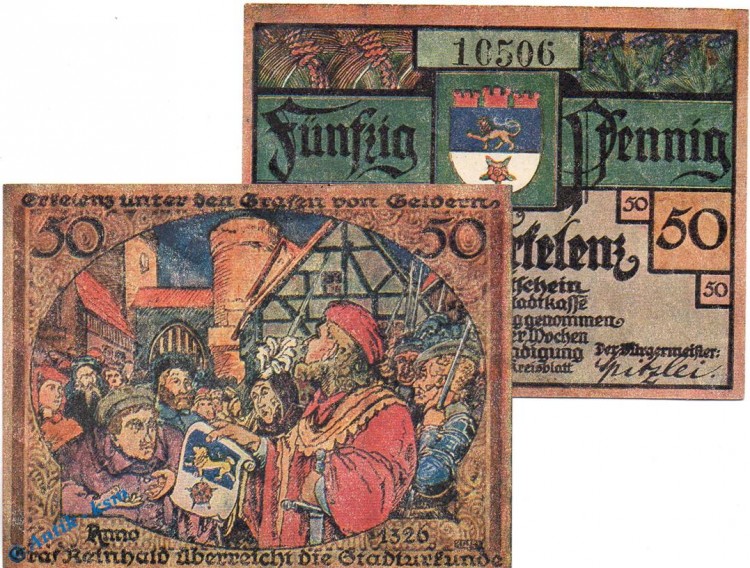 10506
Fünfzig Pfennig
50
50
50
Erkelenz
tschein
Stadtkasse
genommen
er Wochen
digung
Der Bürgermeister:
Kreisblatt
Erkelenz unter den Grafen von Geldern
50 50
Anno 1326
Graf Reinhald überreicht die Stadturkunde
Antik - ksm